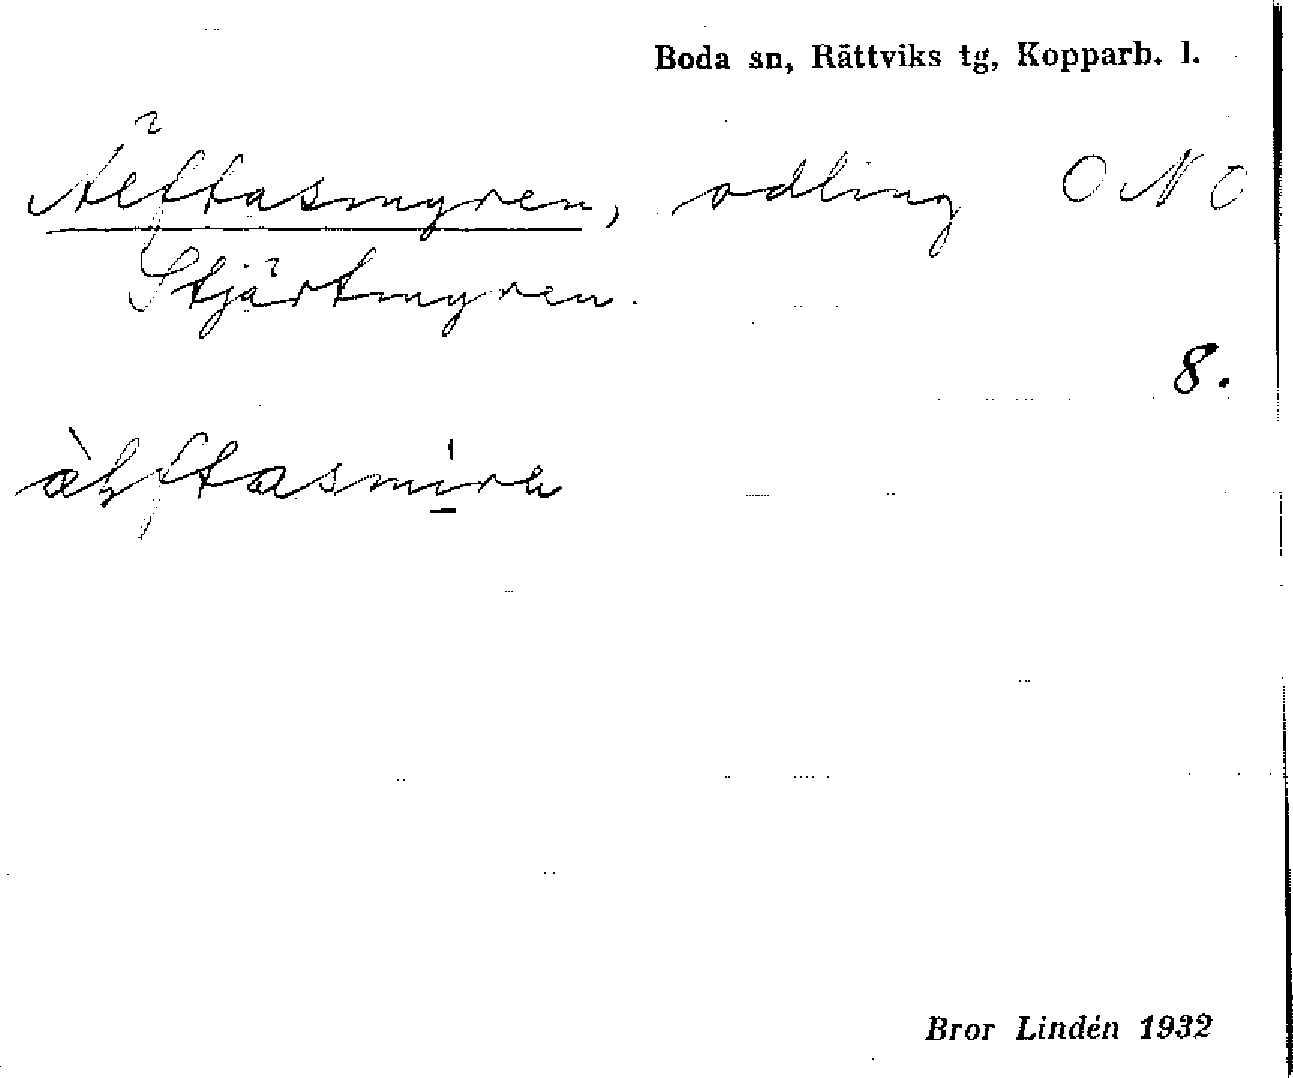 Boda sn, Rättviks tg, Kopparb. l.
Älftasmyren, odling ONO
Stjärtmyren.
8.
Bror Lindén 1932